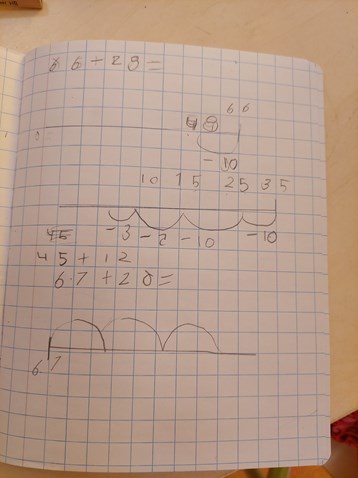 66-23=
66
-10
10 15 25 35
-3 -2 -10 -10
45+12
67+20=
67